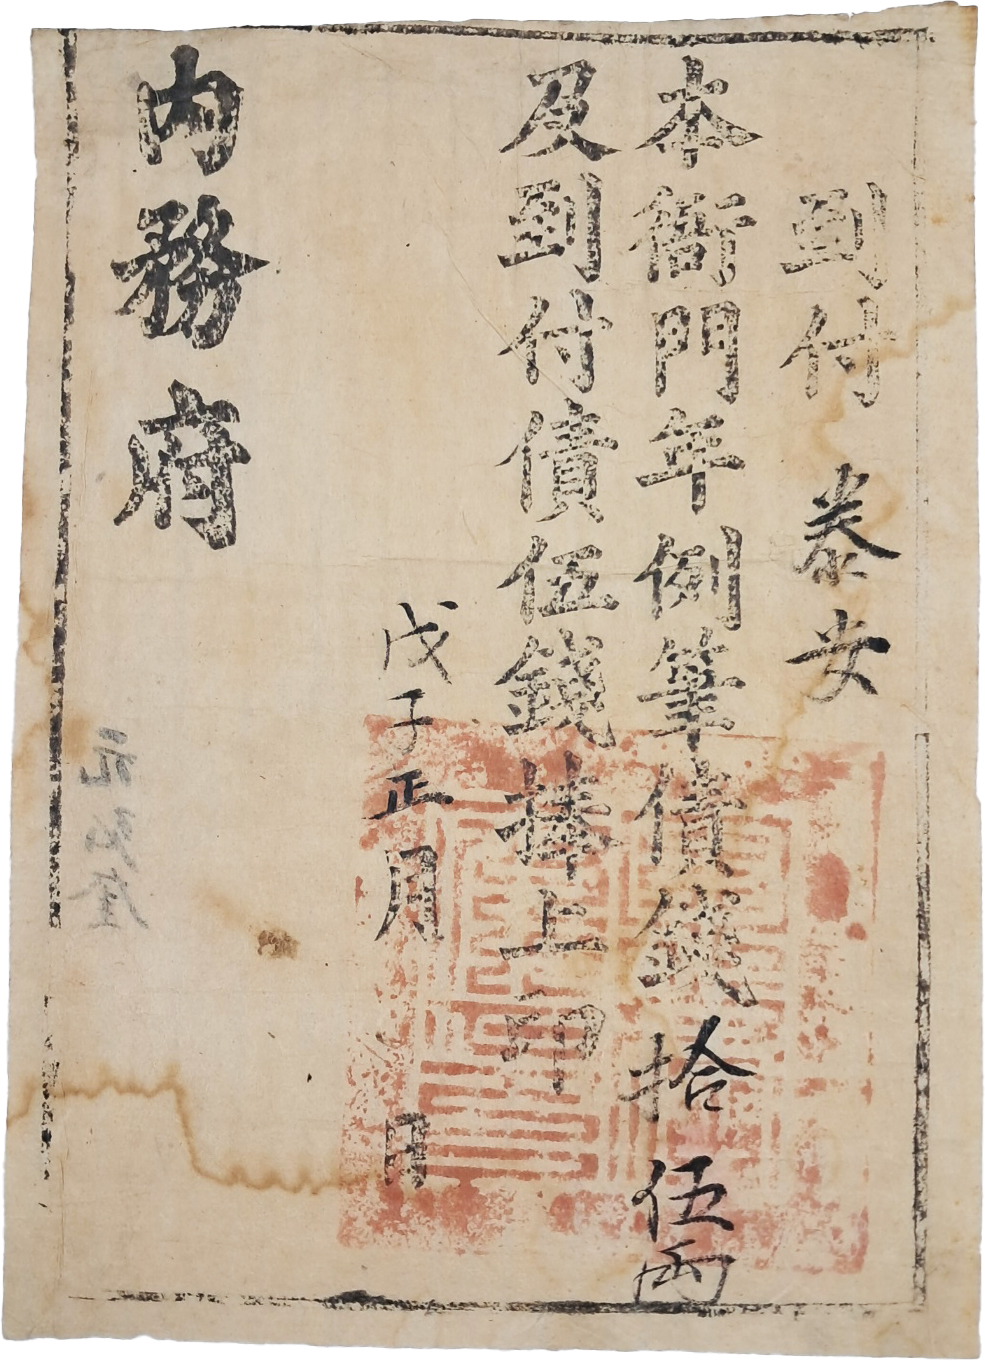 到付 泰安
本衙門年例筆債錢拾伍兩
及到付債伍錢捧上印
戊子正月 日
內務府